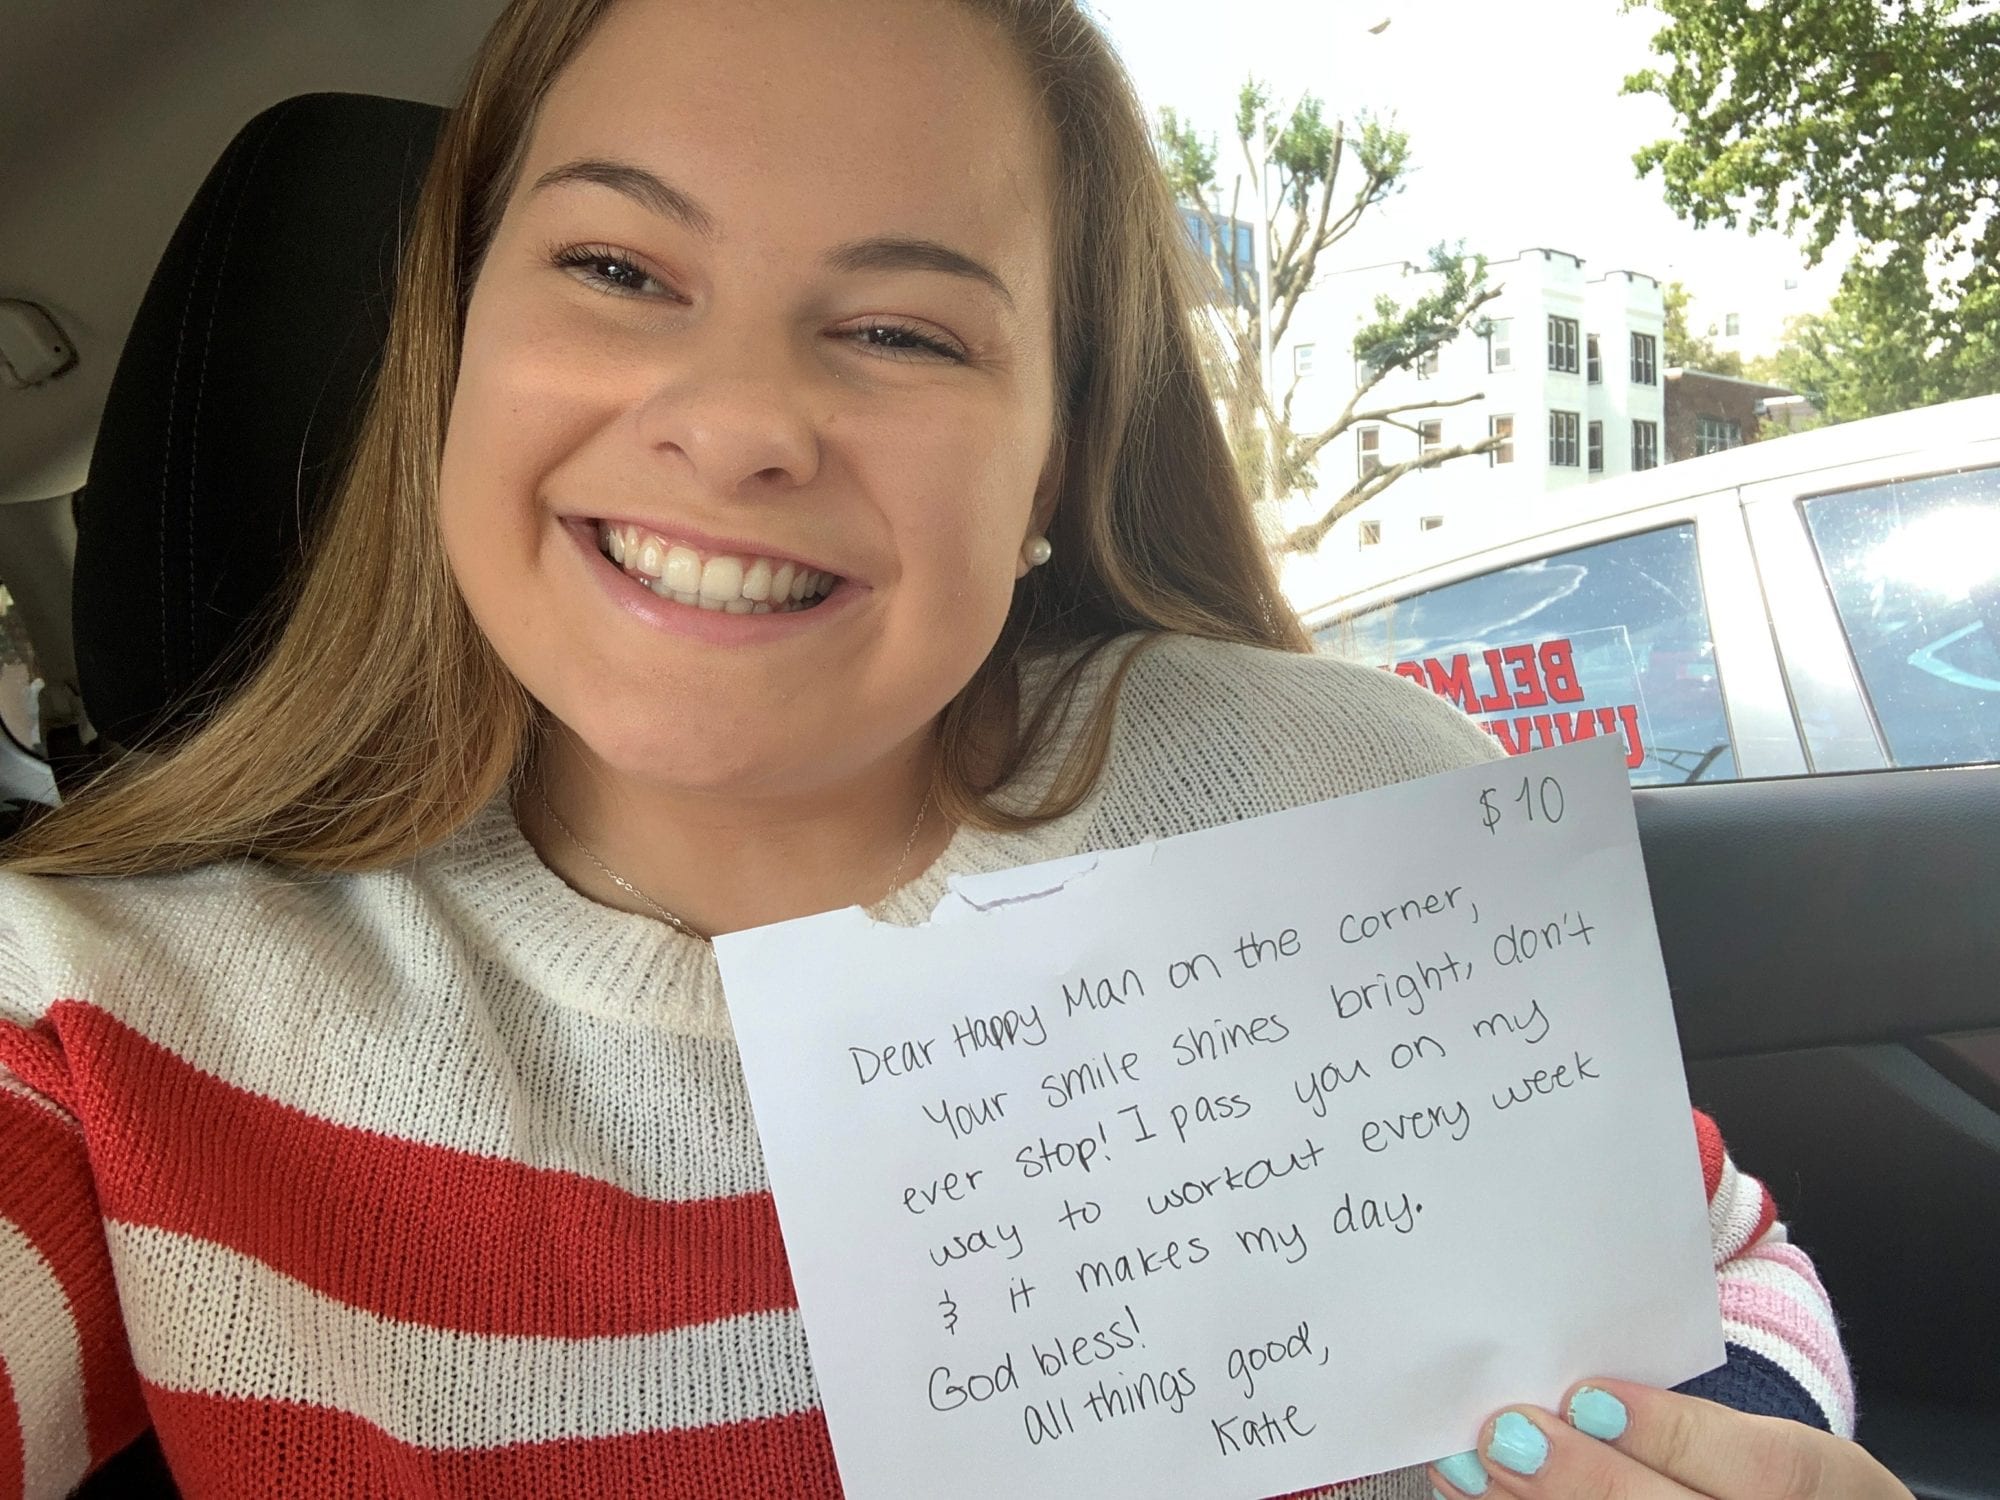 $10
Dear Happy Man on the corner,
Your smile shines bright, don't
ever stop! I pass you on my
way to workout every week
& it makes my day.
God bless!
all things good,
Katie
BELMO
UNIV